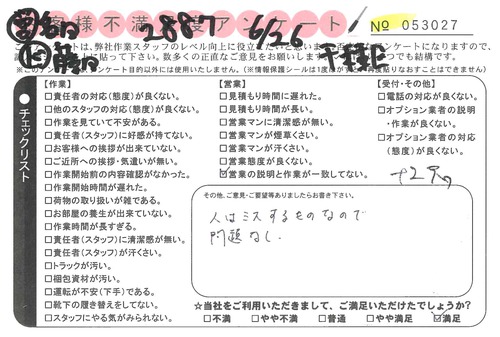 お客様不満足度アンケート
2887 6/26
№ 053027
千種区
チェックリスト
【作業】
□責任者の対応(態度)が良くない。
□他のスタッフの対応(態度)が良くない。
□作業を見ていて不安がある。
□責任者(スタッフ)に好感が持てない。
□お客様への挨拶が出来ていない。
□ご近所への挨拶・気遣いが無い。
□作業開始前の内容確認がなかった。
□作業開始時間が遅れた。
□荷物の取り扱いが雑である。
□お部屋の養生が出来ていない。
□作業時間が長すぎる。
□責任者(スタッフ)に清潔感が無い。
□責任者(スタッフ)が汗くさい。
□トラックが汚い。
□梱包資材が汚い。
□運転が不安(下手)である。
□靴下の履き替えをしてない。
□スタッフにやる気がみられない。
【営業】
□見積もり時間に遅れた。
□見積もり時間が長い。
□営業マンに清潔感が無い。
□営業マンが煙草くさい。
□営業マンが汗くさい。
□営業態度が良くない。
☑営業の説明と作業が一致してない。
【受付・その他】
□電話の対応が良くない。
□オプション業者の説明
・作業が良くない。
□オプション業者の対応
(態度)が良くない。
その他、ご意見・ご要望等ありましたらお書き下さい。
人はミスするものなので
問題なし.
☆当社をご利用いただきまして、ご満足いただけたでしょうか?
□不満 □やや不満 □普通 □やや満足 ☑満足